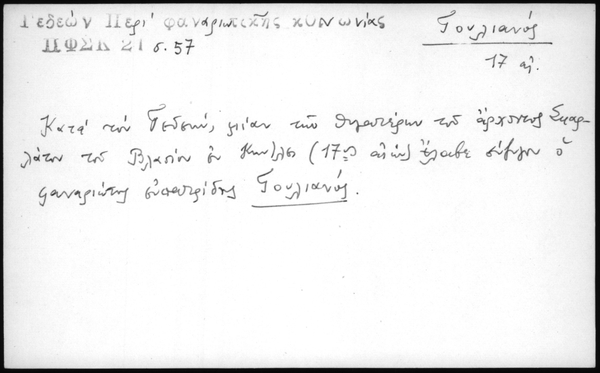 Γεδεών Περί φαναριωτικῆς κοινωνίας
ΠΦΣΚ 21 σ. 57
Γουλιανός
17 αἰ.
Κατά τόν Γεδεών, μίαν τῶν θυγατέρων τοῦ ἄρχοντος Σκαρ-
λάτου τοῦ Βλασίου ἐν Κων/λει (17ος αἰών) ἔλαβε σύζυγον ὁ
φαναριώτης εὐπατρίδης Γουλιανός.